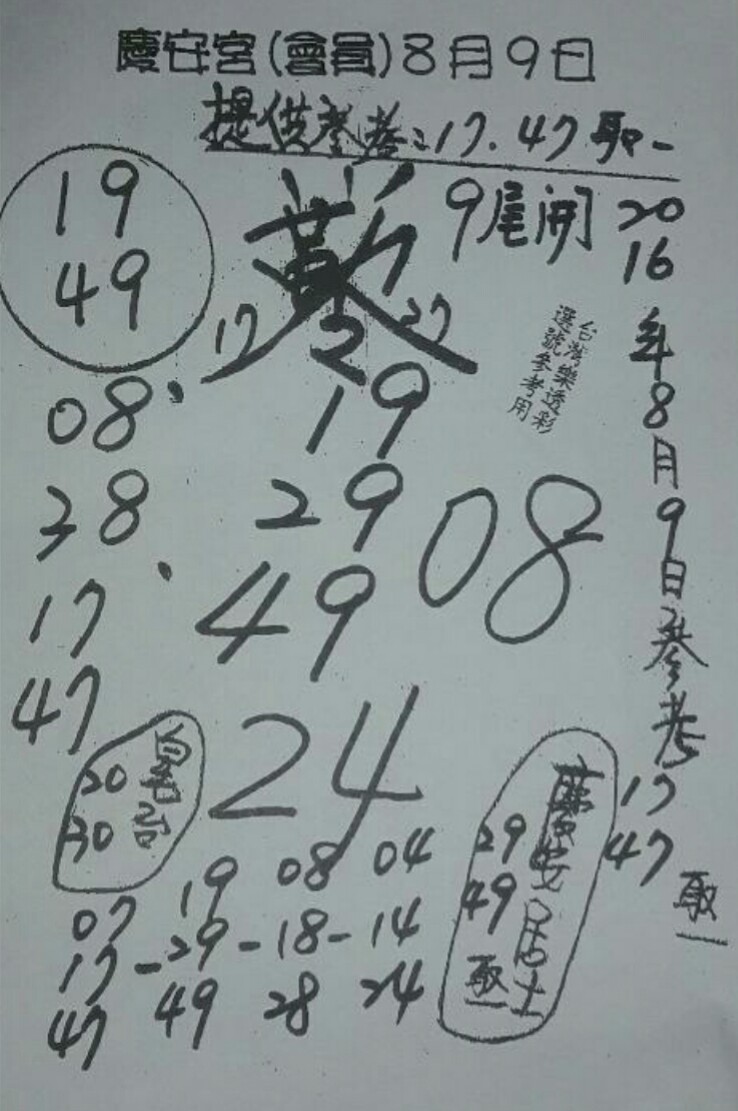 慶安宮(會員)8月9日
提供參考:17.47取一
9尾開
19
49
17 2 27
08
38
17
47
19
29
49
08
24
2016年8月9日參考
17
47
取一
台灣樂透彩
選號參考用
20
30
慶安居士
29
49
取一
07 19 08 04
17-29-18-14
47 49 28 24